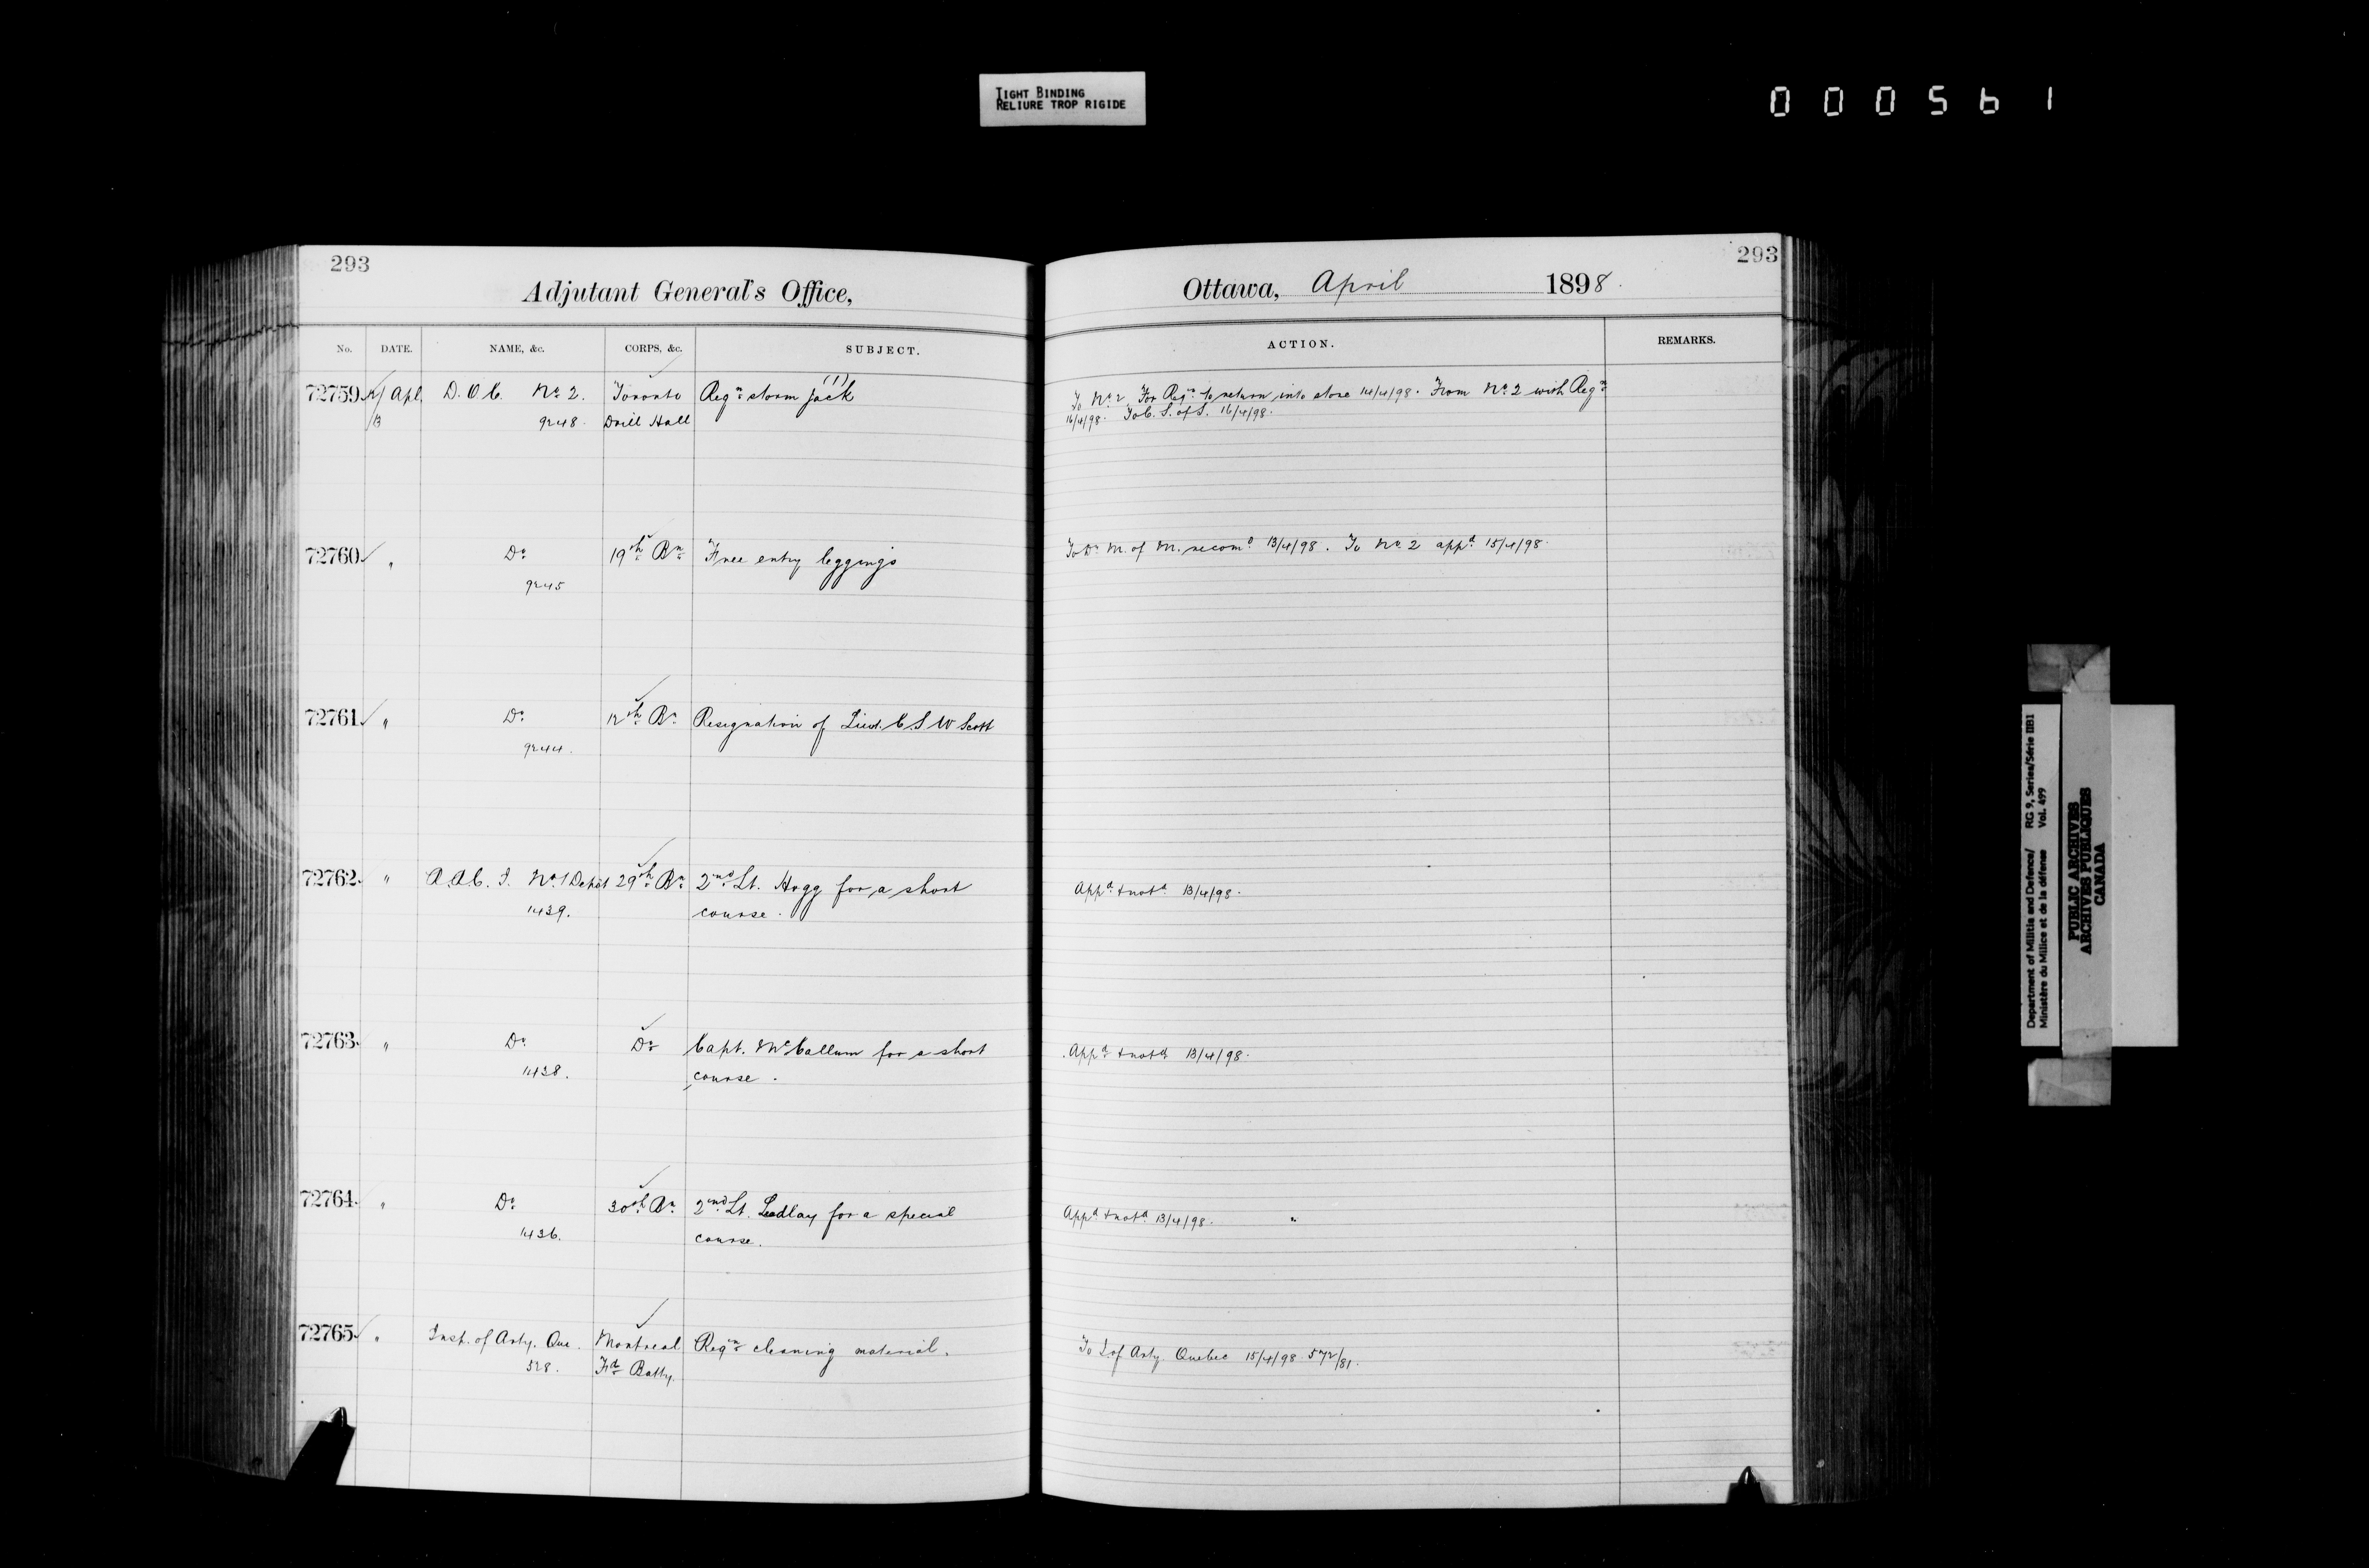 TIGHT BINDING
RELIURE TROP RIGIDE
000561
293
Adjutant General's Office,
No. DATE. NAME, &c. CORPS, &c. SUBJECT.
72759 Apl. D.O.C. No. 2. Toronto Reqn. storm jack (1)
13 9248. Drill Hall
72760 " Do. 19th Bn. Free entry leggings
9245
72761 " Do. 12th Bn. Resignation of Lieut. C.S.W Scott
9244.
72762 " No. 1 Depot 29th Bn. 2nd Lt. Hogg for a short
1439. course.
72763 " Do. Do. Capt. McCallum for a short
1438. course.
72764 " Do. 30th Bn. 2nd Lt. Ledlay for a special
1436. course.
72765 " Insp. of Arty. Que. Montreal Reqn. cleaning material.
528. Fd. Batty.
293
Ottawa, April 1898.
ACTION. REMARKS.
To No. 2 For Reqn. to return into store 14/4/98. From No. 2 with Reqn.
16/4/98. To C.S. of S. 16/4/98.
To D. M. of M. recomd. 13/4/98. To No. 2 appd. 15/4/98.
Appd. & notd. 13/4/98.
Appd. & notd. 13/4/98.
Appd. & notd. 13/4/98.
To I. of Arty Quebec 15/4/98 572/81.
Department of Militia and Defence/ RG 9, Series/Série IIB1
Ministère du Milice et de la défense Vol. 499
PUBLIC ARCHIVES
ARCHIVES PUBLIQUES
CANADA